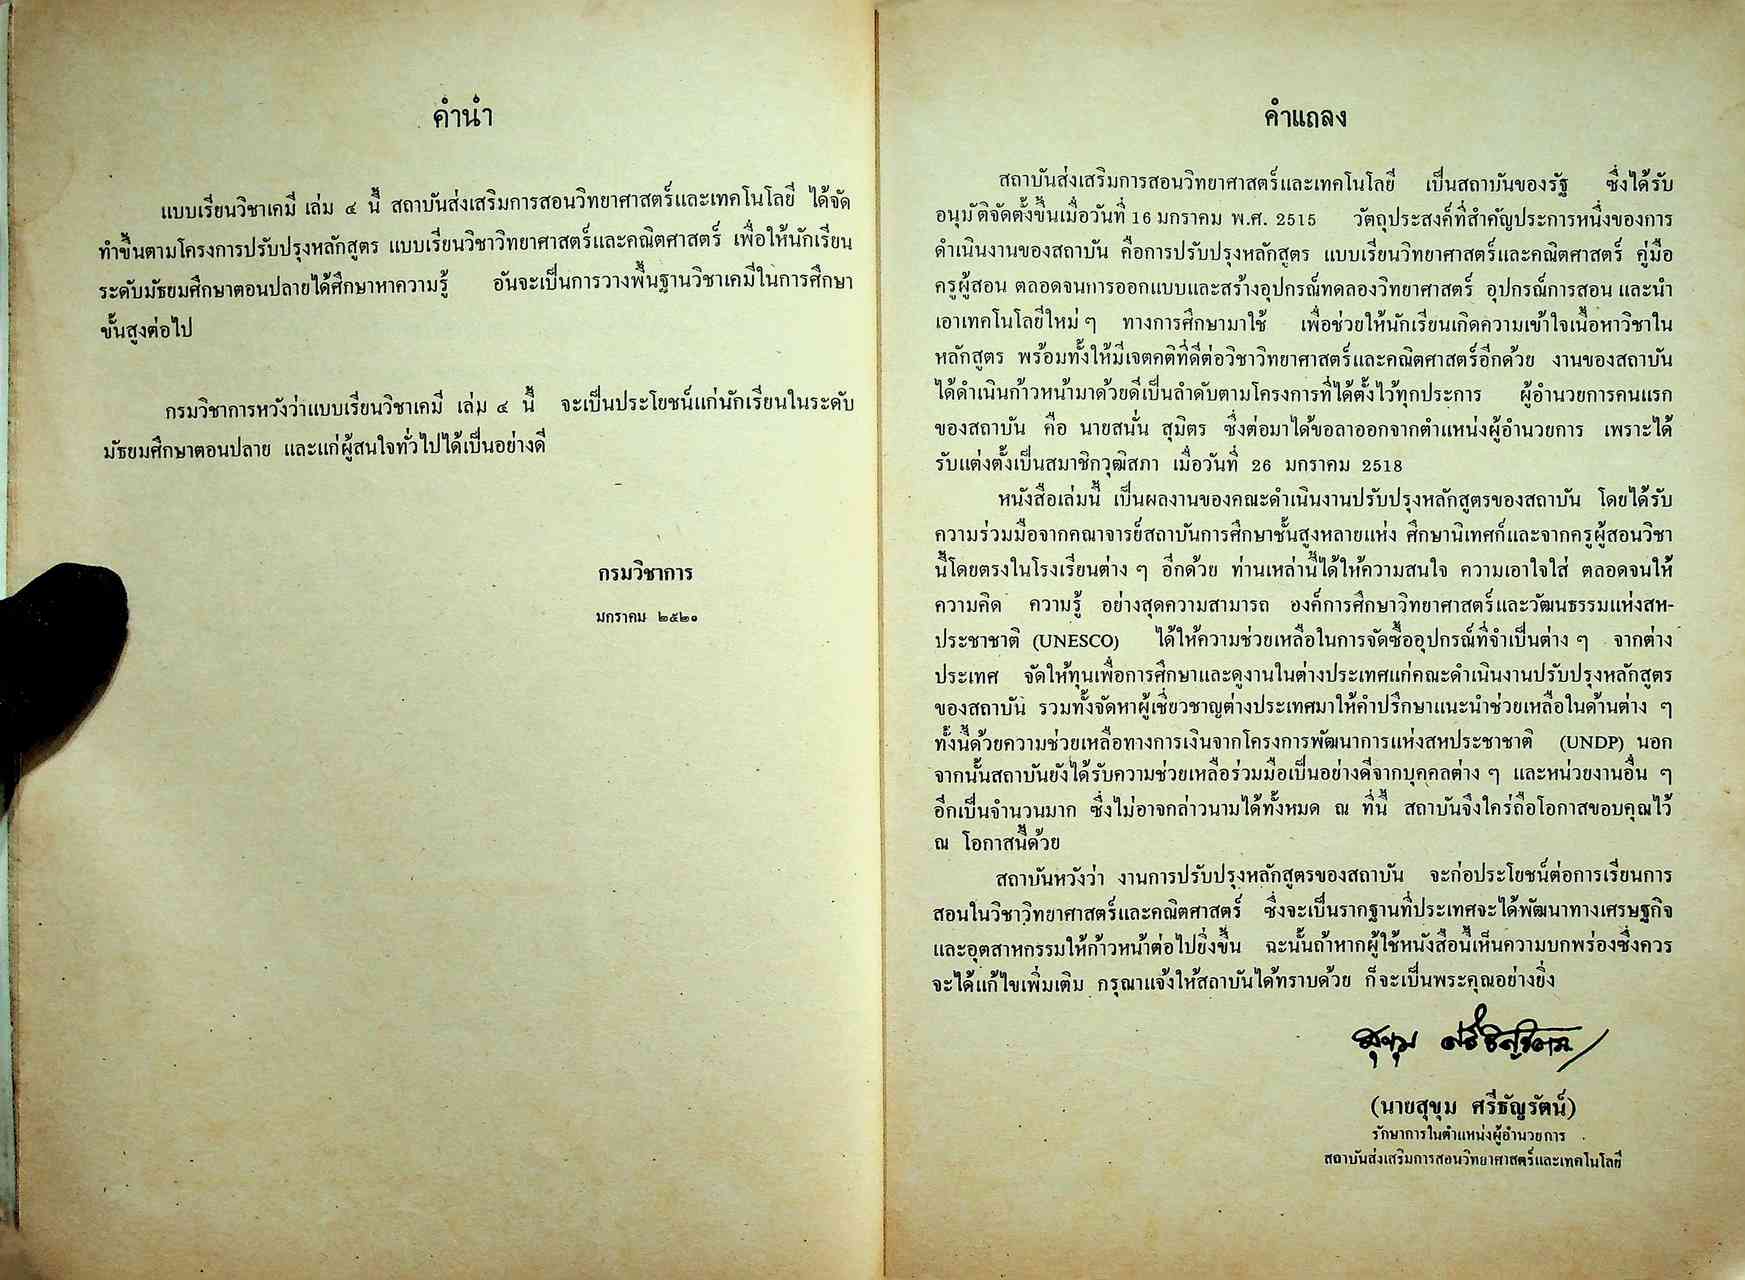 คำนำ
แบบเรียนวิชาเคมี เล่ม ๔ นี้ สถาบันส่งเสริมการสอนวิทยาศาสตร์และเทคโนโลยี ได้จัด
ทำขึ้นตามโครงการปรับปรุงหลักสูตร แบบเรียนวิชาวิทยาศาสตร์และคณิตศาสตร์ เพื่อให้นักเรียน
ระดับมัธยมศึกษาตอนปลายได้ศึกษาหาความรู้ อันจะเป็นการวางพื้นฐานวิชาเคมีในการศึกษา
ขั้นสูงต่อไป
กรมวิชาการหวังว่าแบบเรียนวิชาเคมี เล่ม ๔ นี้ จะเป็นประโยชน์แก่นักเรียนในระดับ
มัธยมศึกษาตอนปลาย และแก่ผู้สนใจทั่วไปได้เป็นอย่างดี
กรมวิชาการ
มกราคม ๒๕๒๑
คำแถลง
สถาบันส่งเสริมการสอนวิทยาศาสตร์และเทคโนโลยี เป็นสถาบันของรัฐ ซึ่งได้รับ
อนุมัติจัดตั้งขึ้นเมื่อวันที่ 16 มกราคม พ.ศ. 2515 วัตถุประสงค์ที่สำคัญประการหนึ่งของการ
ดำเนินงานของสถาบัน คือการปรับปรุงหลักสูตร แบบเรียนวิทยาศาสตร์และคณิตศาสตร์ คู่มือ
ครูผู้สอน ตลอดจนการออกแบบและสร้างอุปกรณ์ทดลองวิทยาศาสตร์ อุปกรณ์การสอน และนำ
เอาเทคโนโลยีใหม่ ๆ ทางการศึกษามาใช้ เพื่อช่วยให้นักเรียนเกิดความเข้าใจเนื้อหาวิชาใน
หลักสูตร พร้อมทั้งให้มีเจตคติที่ดีต่อวิชาวิทยาศาสตร์และคณิตศาสตร์อีกด้วย งานของสถาบัน
ได้ดำเนินก้าวหน้ามาด้วยดีเป็นลำดับตามโครงการที่ได้ตั้งไว้ทุกประการ ผู้อำนวยการคนแรก
ของสถาบัน คือ นายสนั่น สุมิตร ซึ่งต่อมาได้ขอลาออกจากตำแหน่งผู้อำนวยการ เพราะได้
รับแต่งตั้งเป็นสมาชิกวุฒิสภา เมื่อวันที่ 26 มกราคม 2518
หนังสือเล่มนี้ เป็นผลงานของคณะดำเนินงานปรับปรุงหลักสูตรของสถาบัน โดยได้รับ
ความร่วมมือจากคณาจารย์สถาบันการศึกษาชั้นสูงหลายแห่ง ศึกษานิเทศก์และจากครูผู้สอนวิชา
นี้โดยตรงในโรงเรียนต่าง ๆ อีกด้วย ท่านเหล่านี้ได้ให้ความสนใจ ความเอาใจใส่ ตลอดจนให้
ความคิด ความรู้ อย่างสุดความสามารถ องค์การศึกษาวิทยาศาสตร์และวัฒนธรรมแห่งสห-
ประชาชาติ (UNESCO) ได้ให้ความช่วยเหลือในการจัดซื้ออุปกรณ์ที่จำเป็นต่าง ๆ จากต่าง
ประเทศ จัดให้ทุนเพื่อการศึกษาและดูงานในต่างประเทศแก่คณะดำเนินงานปรับปรุงหลักสูตร
ของสถาบัน รวมทั้งจัดหาผู้เชี่ยวชาญต่างประเทศมาให้คำปรึกษาแนะนำช่วยเหลือในด้านต่าง ๆ
ทั้งนี้ด้วยความช่วยเหลือทางการเงินจากโครงการพัฒนาการแห่งสหประชาชาติ (UNDP) นอก
จากนั้นสถาบันยังได้รับความช่วยเหลือร่วมมือเป็นอย่างดีจากบุคคลต่าง ๆ และหน่วยงานอื่น ๆ
อีกเป็นจำนวนมาก ซึ่งไม่อาจกล่าวนามได้ทั้งหมด ณ ที่นี้ สถาบันจึงใคร่ถือโอกาสขอบคุณไว้
ณ โอกาสนี้ด้วย
สถาบันหวังว่า งานการปรับปรุงหลักสูตรของสถาบัน จะก่อประโยชน์ต่อการเรียนการ
สอนในวิชาวิทยาศาสตร์และคณิตศาสตร์ ซึ่งจะเป็นรากฐานที่ประเทศจะได้พัฒนาทางเศรษฐกิจ
และอุตสาหกรรมให้ก้าวหน้าต่อไปยิ่งขึ้น ฉะนั้นถ้าหากผู้ใช้หนังสือนี้เห็นความบกพร่องซึ่งควร
จะได้แก้ไขเพิ่มเติม กรุณาแจ้งให้สถาบันได้ทราบด้วย ก็จะเป็นพระคุณอย่างยิ่ง
สุขุม ศรีธัญรัตน์
(นายสุขุม ศรีธัญรัตน์)
รักษาการในตำแหน่งผู้อำนวยการ
สถาบันส่งเสริมการสอนวิทยาศาสตร์และเทคโนโลยี